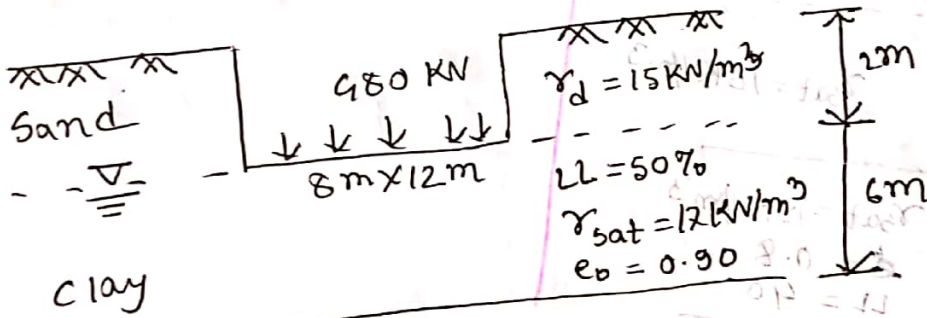 Sand
980 KN
γd = 15 KN/m³
2m
8m×12m
LL = 50%
γsat = 17KN/m³
e₀ = 0.90
6m
Clay